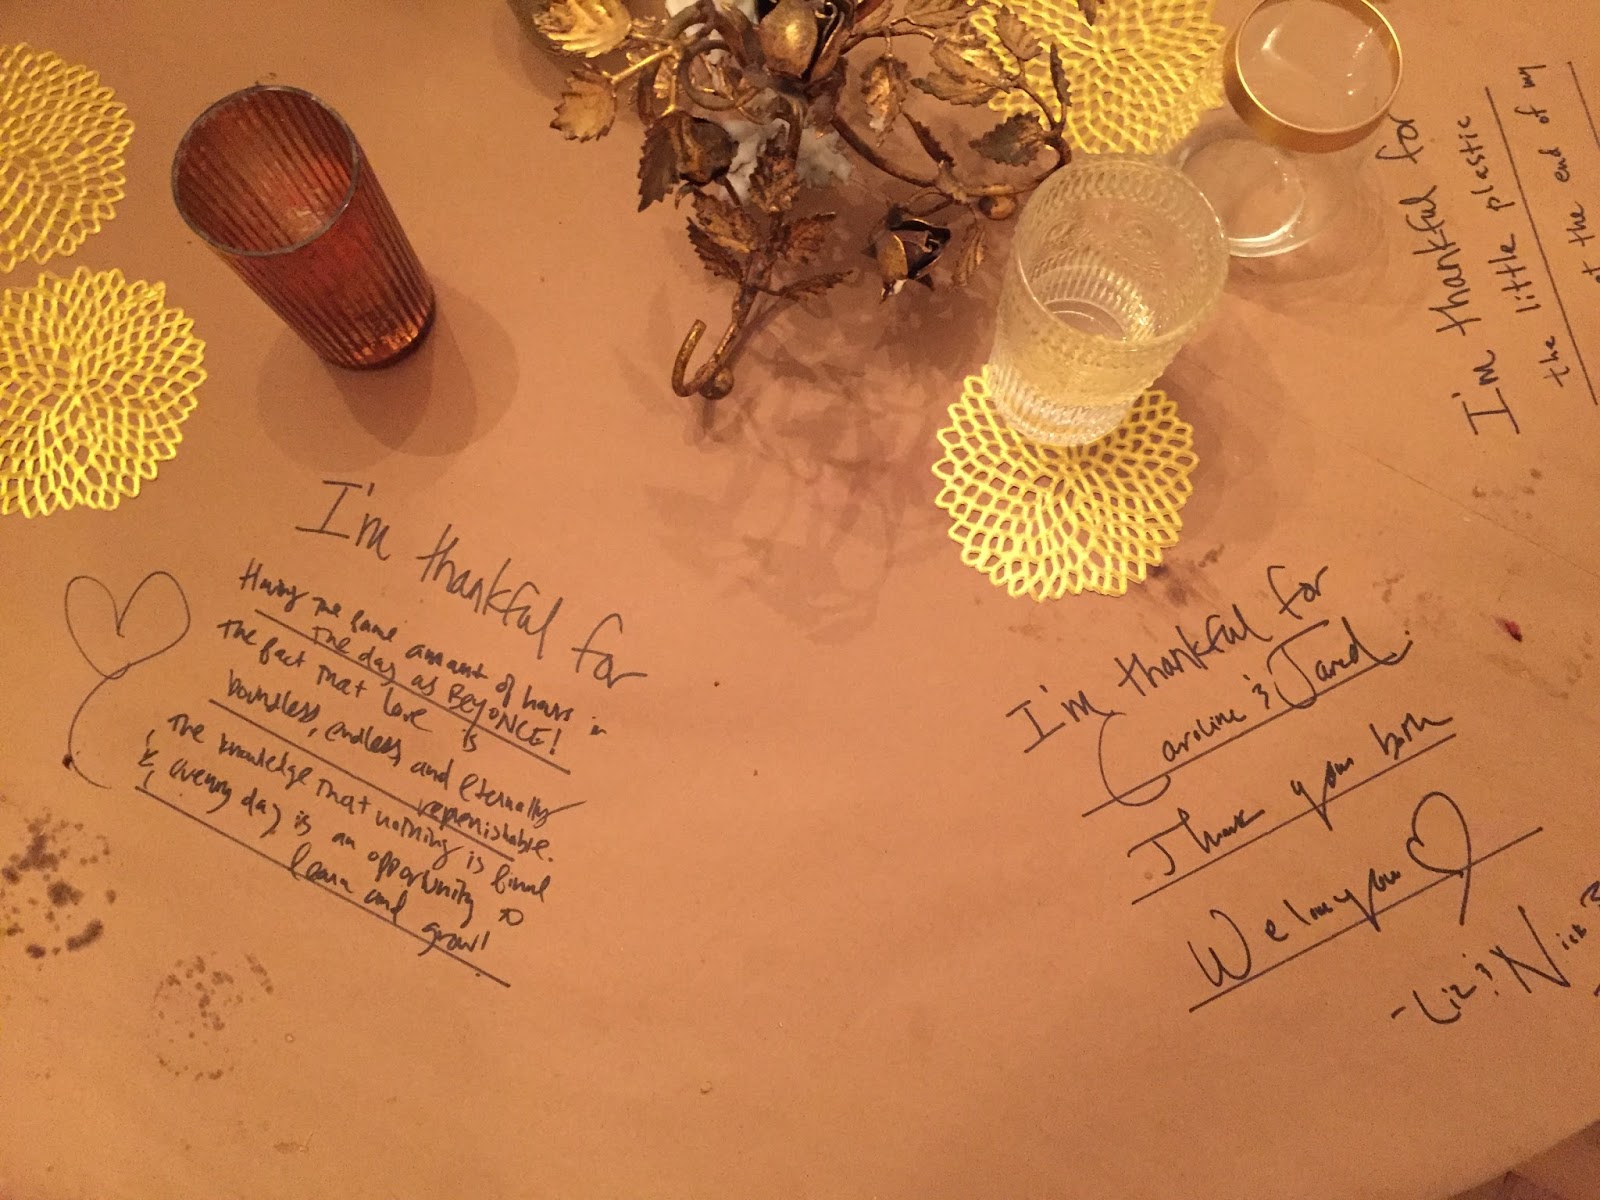 I'm thankful for
Having the same amount of hours in
the day as BEYONCE!
The fact that love is
boundless, endless, and eternally
replenishable.
The knowledge that nothing is final
& every day is an opportunity to
learn and grow!
I'm thankful for
Caroline & Jared
Thank you both
We love you
- Liz & Nick
I'm thankful for
the little plastic
at the end of my